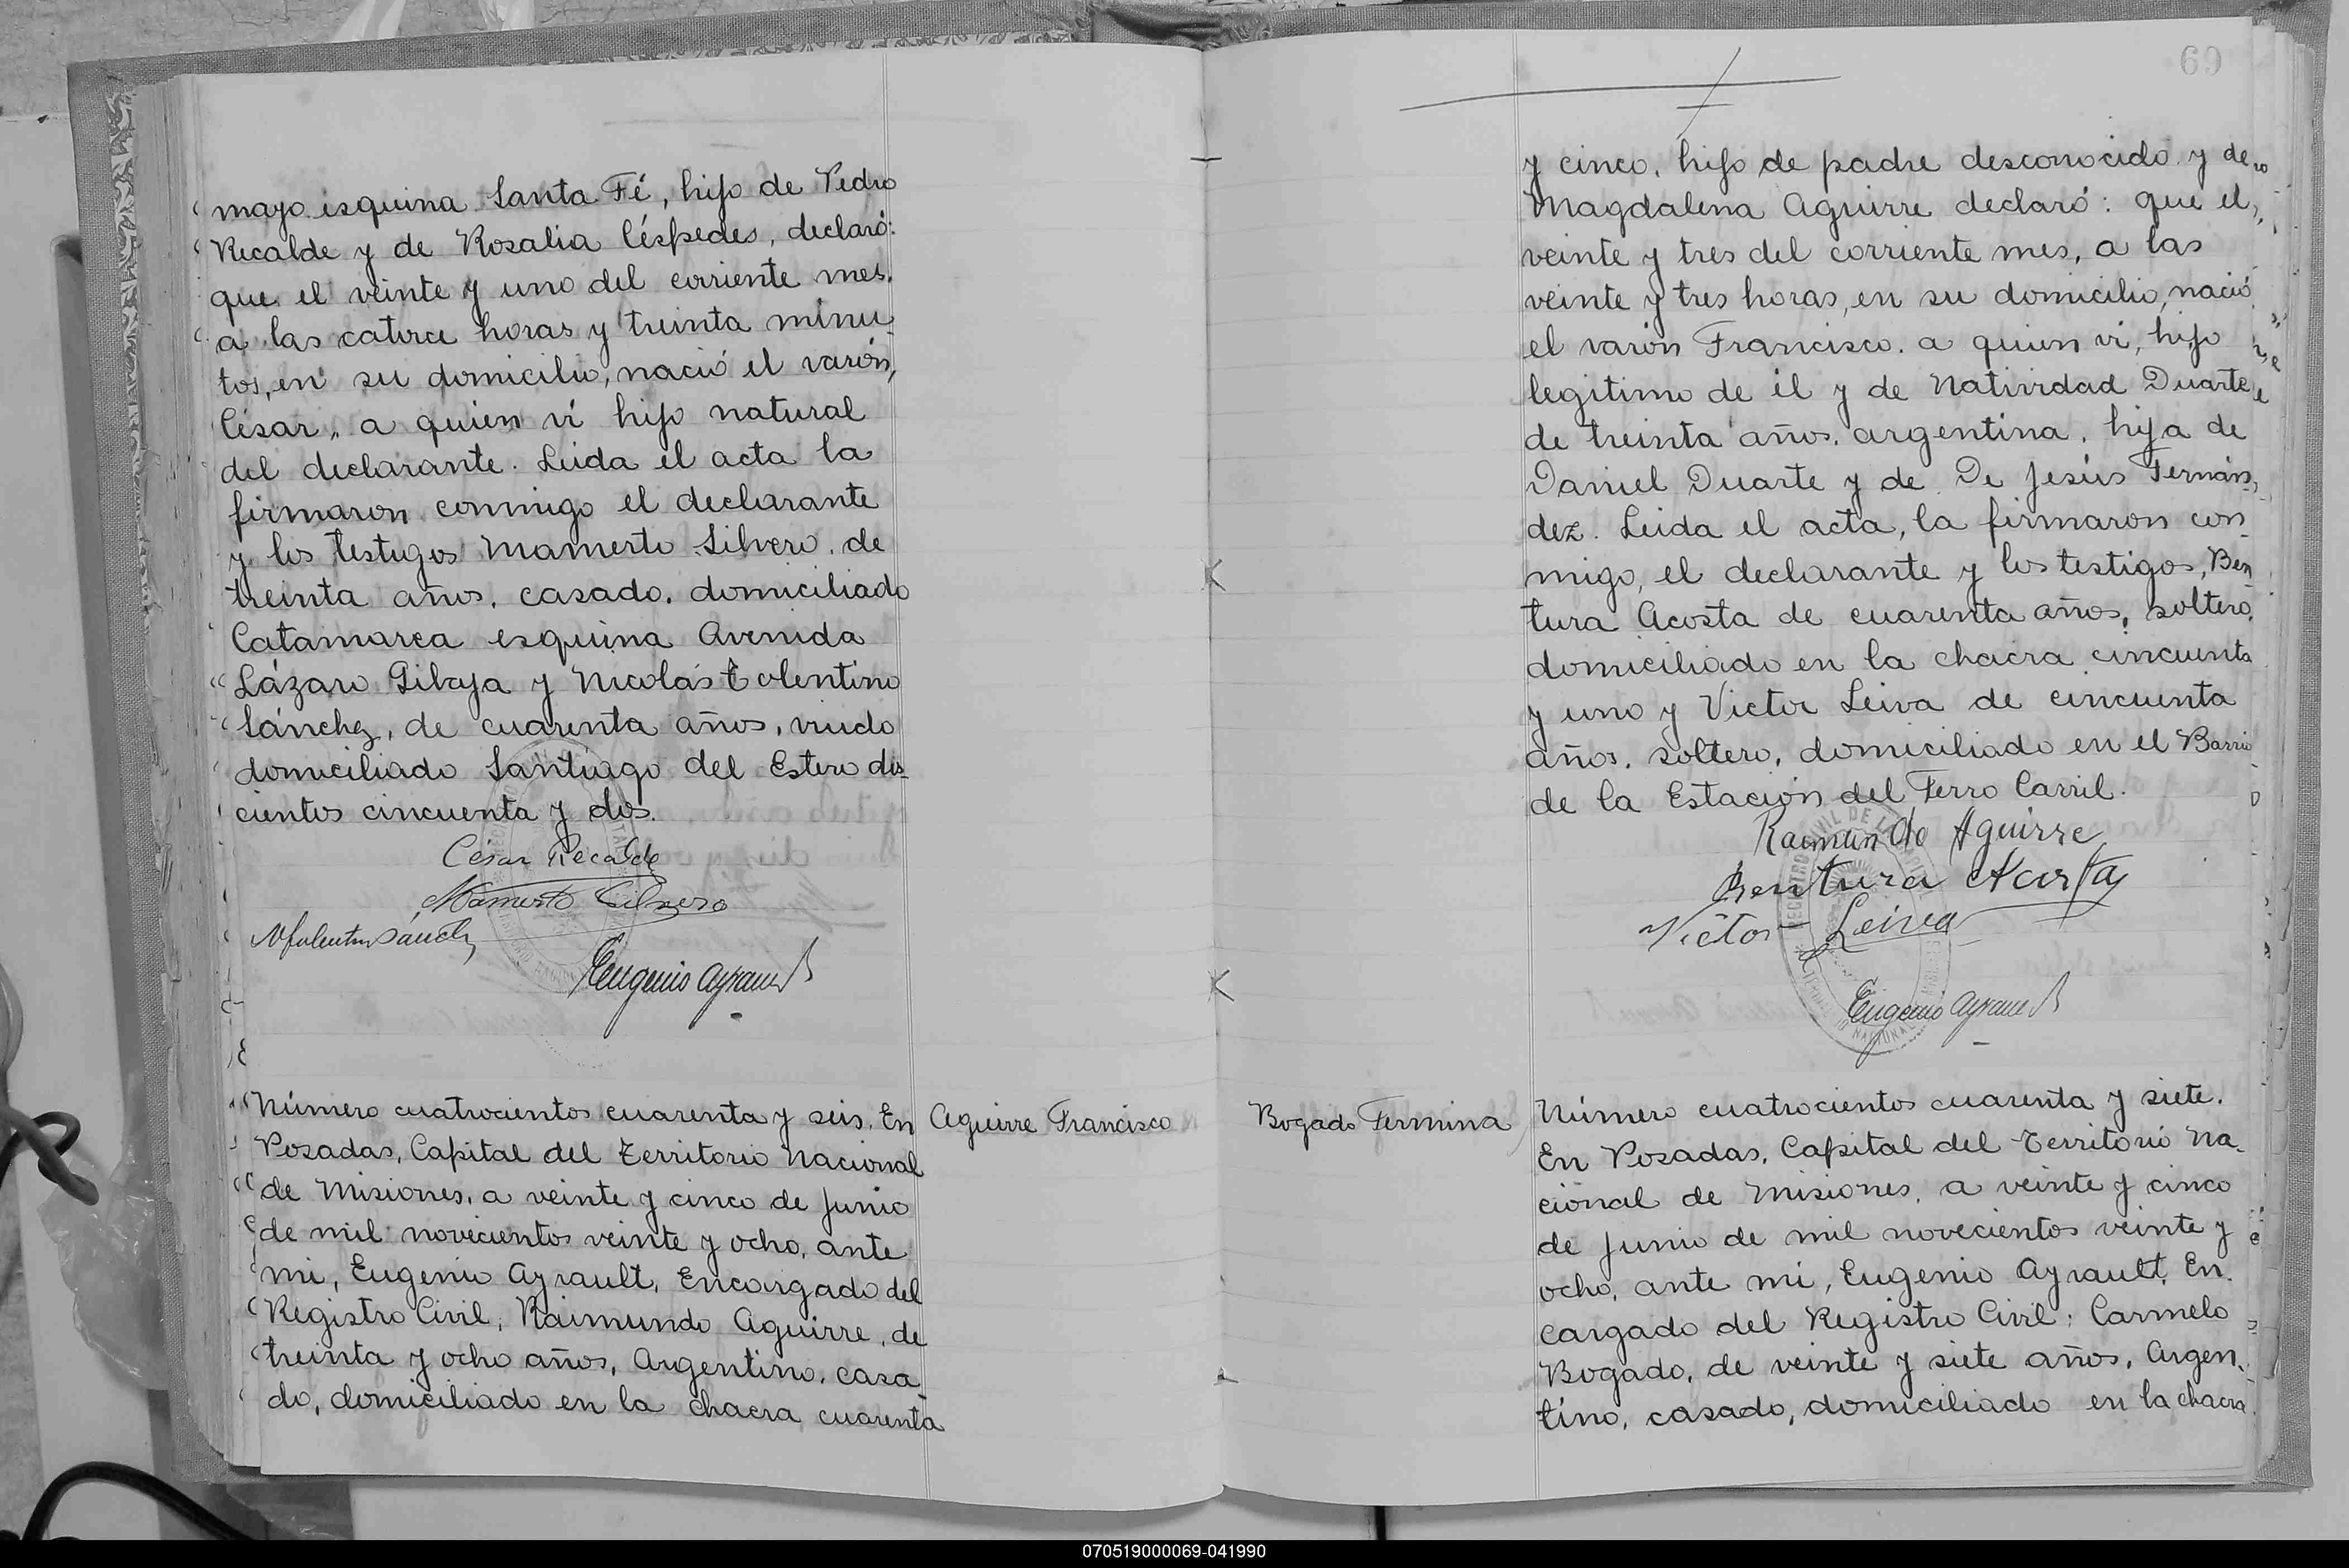 mayo esquina Santa Fé, hijo de Pedro
Recalde y de Rosalia Céspedes, declaró:
que el veinte y uno del corriente mes,
a las catorce horas y treinta minu
tos, en su domicilio, nació el varón,
César, a quien ví hijo natural
del declarante. Leida el acta la
firmaron conmigo el declarante
y los testigos Mamerto Silvero, de
treinta años, casado, domiciliado
Catamarca esquina Avenida
Lázaro Gibaja y Nicolás tolentino
Sánchez, de cuarenta años, viudo
domiciliado Santiago del Estero dos-
cientos cincuenta y dos.
César Recalde
Mamerto Silvero
N Tolentino Sanchz
Eugenio Ayrault
Número cuatrocientos cuarenta y seis. En
Posadas, Capital del Territorio Nacional
de Misiones, a veinte y cinco de Junio
de mil novecientos veinte y ocho, ante
mi, Eugenio Ayrault, Encargado del
Registro Civil, Raimundo Aguirre, de
treinta y ocho años, Argentino, casa-
do, domiciliado en la chacra cuarenta
Aguirre Francisco
69
y cinco, hijo de padre desconocido y de
Magdalena Aguirre declaró: que el
veinte y tres del corriente mes, a las
veinte y tres horas, en su domicilio, nació
el varón Francisco, a quien vi, hijo
legitimo de él y de Natividad Duarte
de treinta años, argentina, hija de
Daniel Duarte y de De Jesús Fernán-
dez. Leida el acta, la firmaron con-
migo, el declarante y los testigos, Ben
tura Acosta de cuarenta años, soltero,
domiciliado en la chacra cincuenta
y uno y Victor Leiva de cincuenta
años, soltero, domiciliado en el Barrio
de la Estación del Ferro Carril.
Raimundo Aguirre
Bentura Acosta
Victor Leiva
Eugenio Ayrault
Bogado Fermina
Número cuatrocientos cuarenta y siete.
En Posadas, Capital del Territorio Na-
cional de Misiones, a veinte y cinco
de Junio de mil novecientos veinte y
ocho, ante mi, Eugenio Ayrault, En-
cargado del Registro Civil: Carmelo
Bogado, de veinte y siete años, Argen-
tino, casado, domiciliado en la chacra
070519000069-041990